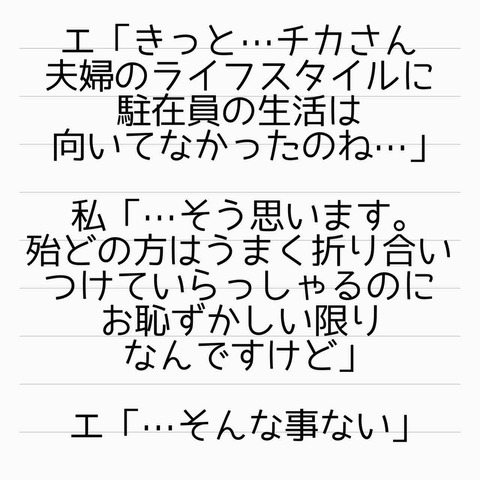 エ「きっと…チカさん
夫婦のライフスタイルに
駐在員の生活は
向いてなかったのね…」
私「…そう思います。
殆どの方はうまく折り合い
つけていらっしゃるのに
お恥ずかしい限り
なんですけど」
エ「…そんな事ない」